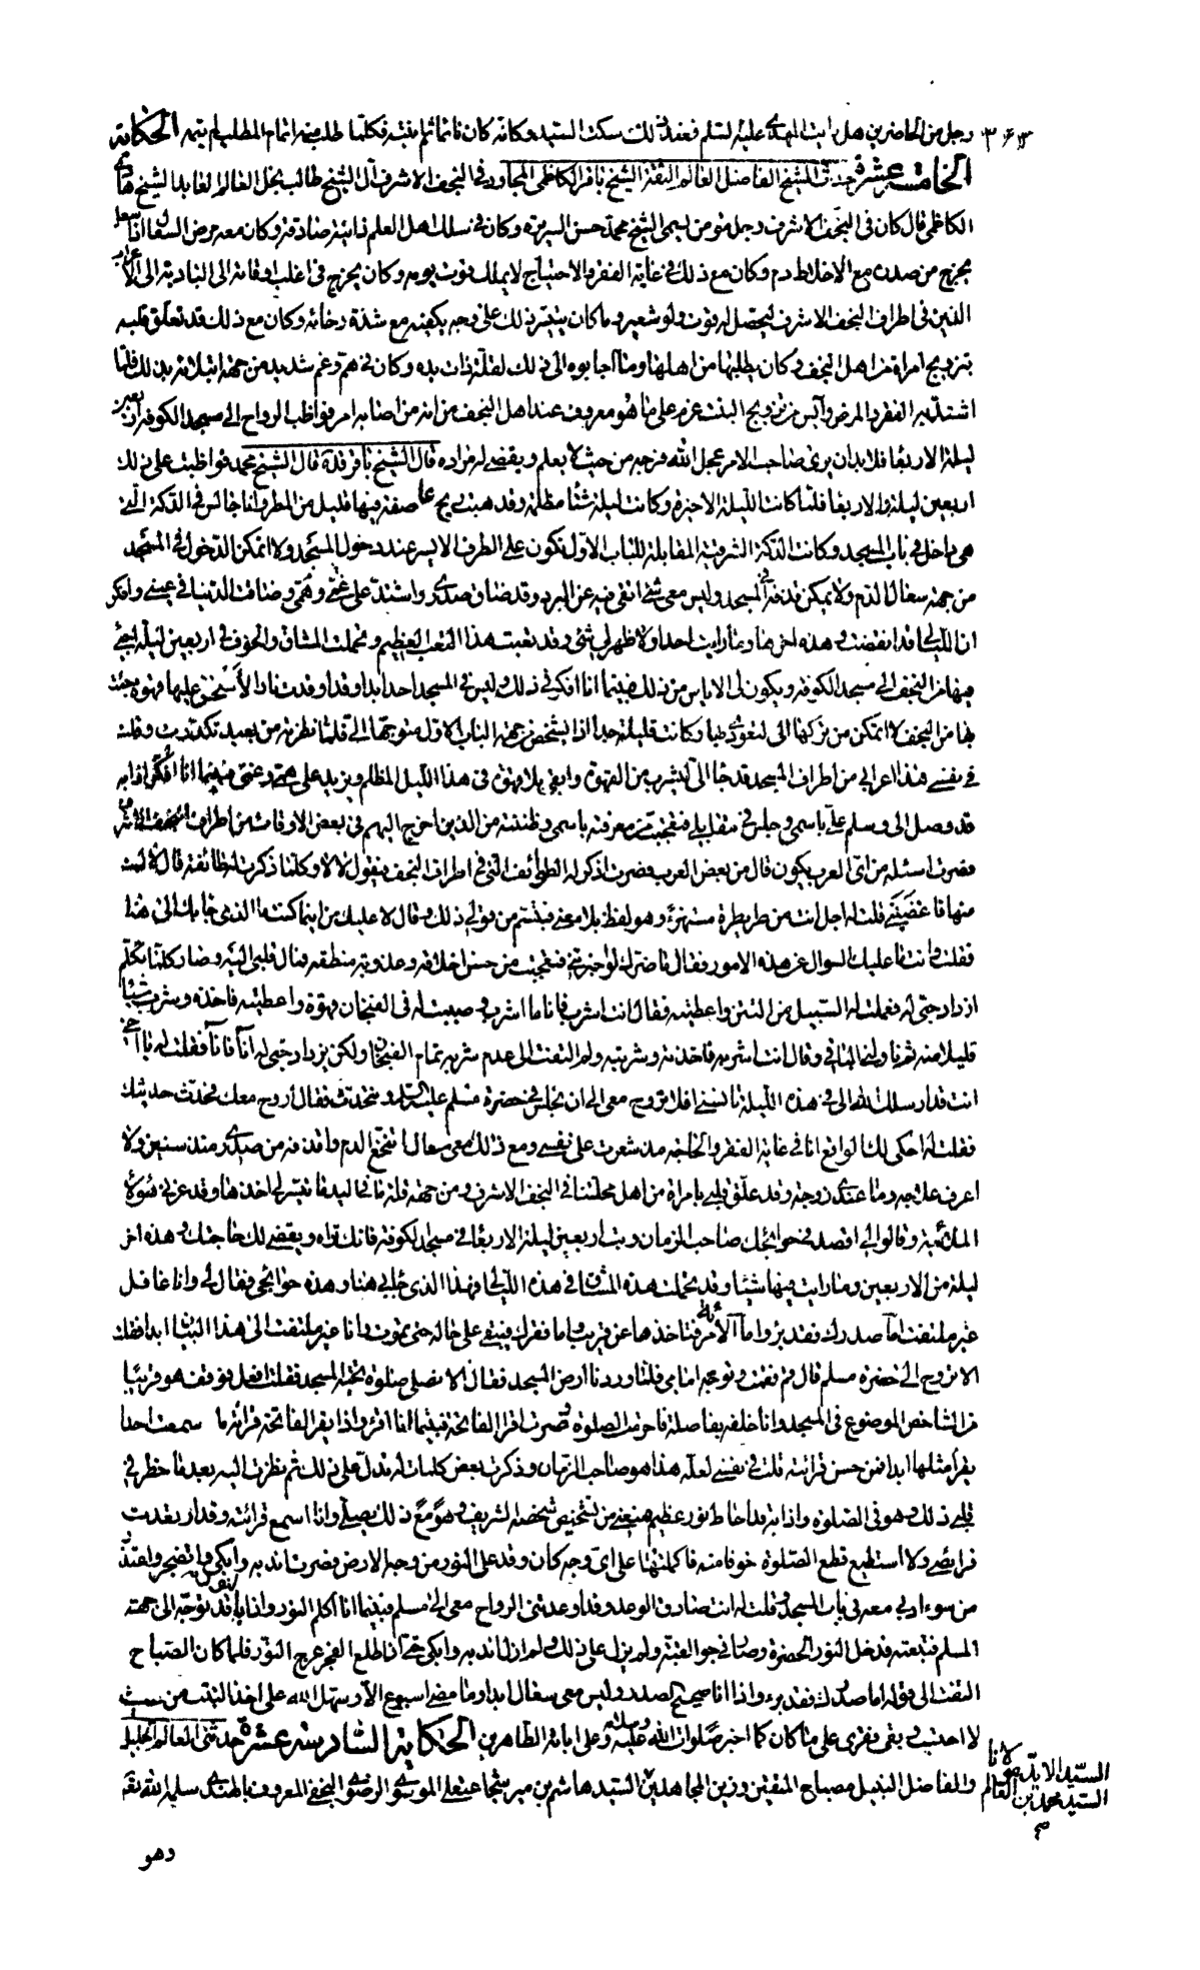 ٣٦٣
رجل من الحاضرين هل رايت المهدي عليه السلام فعند ذلك سكت السيد وكانه كان نائما ثم انتبه فكلما طلب منه اتمام المطلب لم يتمه الحكاية
الخامسة عشرة حدث الشيخ الفاضل العالم الثقة الشيخ باقر الكاظمي المجاور في النجف الاشرف آل الشيخ طالب نجل العالم العابد الشيخ هادي
الكاظمي قال كان في النجف الاشرف رجل مؤمن يسمى الشيخ محمد حسن السريرة وكان في سلك اهل العلم ذا نية صادقة وكان معه مرض السعال اذا سعل
يخرج من صدره مع الاخلاط دم وكان مع ذلك في غاية الفقر والاحتياج لا يملك قوت يومه وكان يخرج في اغلب اوقاته الى البادية الى الاعراب
الذين في اطراف النجف الاشرف ليحصل له قوت ولو شعير وما كان يتيسر ذلك على وجه يكفيه مع شدة رجائه وكان مع ذلك قد تعلق قلبه
بتزويج امراة من اهل النجف وكان يطلبها من اهلها وما اجابوه الى ذلك لقلة ذات يده وكان في هم وغم شديد من جهة ابتلائه بذلك فلما
اشتد به الفقر والمرض وآيس من تزويج البنت عزم على ما هو معروف عند اهل النجف من انه من اصابه امر فواظب الرواح الى مسجد الكوفة اربعين
ليلة الاربعاء فلا بد ان يرى صاحب الامر عجل الله فرجه من حيث لا يعلم ويقضي له مراده قال الشيخ باقر قدة قال الشيخ محمد فواظبت على ذلك
اربعين ليلة الاربعاء فلما كانت الليلة الاخيرة وكانت ليلة شتاء مظلمة وقد هبت ريح عاصفة فيها قليل من المطر وانا جالس في الدكة التي
هي داخل في باب المسجد وكانت الدكة الشرقية المقابلة للباب الاول تكون على الطرف الايسر عند دخول المسجد ولا اتمكن الدخول في المسجد
من جهة سعال الدم ولا يمكن قذفه في المسجد وليس معي شيء اتقي فيه عن البرد وقد ضاق صدري واشتد علي غمي وهمي وضاقت الدنيا في عيني وافكر
ان الليالي قد انقضت وهذه اخرها وما رايت احدا ولا ظهر لي شيء وقد تعبت هذا التعب العظيم وتحملت المشاق والخوف في اربعين ليلة اجيء
فيها من النجف الى مسجد الكوفة ويكون لي الاياس من ذلك فبينما انا افكر في ذلك وليس في المسجد احد ابدا وقد اوقدت نارا لأسخن عليها قهوة جئت
بها من النجف لا اتمكن من تركها لتعودي بها وكانت قليلة جدا اذا بشخص من جهة الباب الاول متوجها الي فلما نظرته من بعيد تكدرت وقلت
في نفسي هذا اعرابي من اطراف المسجد قد جاء الي ليشرب من القهوة وابقى بلا قهوة في هذا الليل المظلم ويزيد علي همي وغمي فبينما انا افكر اذا به
قد وصل الي وسلم علي باسمي وجلس في مقابلي فتعجبت من معرفته باسمي وظننته من الذين اخرج اليهم في بعض الاوقات من اطراف النجف الاشرف
فصرت اسئله من اي العرب يكون قال من بعض العرب فصرت اذكر له الطوائف التي في اطراف النجف فيقول لا لا وكلما ذكرت له طائفة قال لا لست
منها فاغضبني قلت له اجل انت من طريطرة مستهزء وهو لفظ بلا معنى فتبسم من قولي ذلك وقال لا عليك من اينما كنت ما الذي جاء بك الى هنا
فقلت وانت ما عليك السوال عن هذه الامور فقال ما ضرك لو اخبرتني فتعجبت من حسن اخلاقه وعذوبة منطقه فمال قلبي اليه وصار كلما تكلم
ازداد حبي له فعملت له السبيل من التتن واعطيته فقال انت اشرب فانا ما اشرب وصببت له في الفنجان قهوة واعطيته فاخذه وشرب شيئا
قليلا منه ثم ناولني الباقي وقال انت اشربه فاخذته وشربته ولم التفت الى عدم شربه تمام الفنجان ولكن يزداد حبي له آنا فآنا فقلت له يا اخي
انت قد ارسلك الله الي في هذه الليلة تانسني افلا تروح معي الى ان نجلس في حضرة مسلم عليه السلام ونتحدث فقال اروح معك فحدث حديثك
فقلت له احكي لك الواقع انا في غاية الفقر والحاجة مذ شعرت على نفسي ومع ذلك معي سعال اتنخع الدم واقذفه من صدري منذ سنين ولا
اعرف علاجه وما عندي زوجة وقد علق قلبي بامراة من اهل محلتنا في النجف الاشرف ومن جهة قلة ما في اليد ما تيسر لي اخذها وقد غرني هؤلاء
الملائية وقالوا لي اقصد في حوائجك صاحب الزمان وبت اربعين ليلة الاربعاء في مسجد الكوفة فانك تراه ويقضي لك حاجتك وهذه اخر
ليلة من الاربعين وما رايت فيها شيئا وقد تحملت هذه المشاق في هذه الليالي فهذا الذي جاء بي هنا وهذه حوائجي فقال لي وانا غافل
غير ملتفت اما صدرك فقد برء واما الامرأة فتاخذها عن قريب واما فقرك فيبقى على حاله حتى تموت وانا غير ملتفت الى هذا البيان ابدا فقلت
الا تروح الى حضرة مسلم قال قم فقمت وتوجه امامي فلما وردنا ارض المسجد فقال الا نصلي صلوة تحية المسجد فقلت افعل فوقف هو قريبا
من الشاخص الموضوع في المسجد وانا خلفه بفاصلة فاحرمت الصلوة وصرت اقرأ الفاتحة فبينما انا اقرء واذا يقرأ الفاتحة قرائة ما سمعت احدا
يقرأ مثلها ابدا فمن حسن قرائته قلت في نفسي لعله هذا هو صاحب الزمان وذكرت بعض كلمات له تدل على ذلك ثم نظرت اليه بعد ما خطر في
قلبي ذلك وهو في الصلوة واذا به قد احاط نور عظيم منعني من تشخيص شخصه الشريف وهو مع ذلك يصلي وانا اسمع قرائته وقد ارتعدت
فرائصي ولا استطيع قطع الصلوة خوفا منه فاكملتها على اي وجه كان وقد علا النور من وجه الارض فصرت اندبه وابكي واتضجر واعتذر
من سوء ادبي معه في باب المسجد وقلت له انت صادق الوعد وقد اوعدتني الرواح معي الى مسلم فبينما انا اكلم النور واذا بالنور قد توجه الى جهة
المسلم فتبعته فدخل النور الحضرة وصار في جو القبة ولم يزل على ذلك ولم ازل اندبه وابكي حتى اذا طلع الفجر عرج النور فلما كان الصباح
التفت الى قوله اما صدرك فقد برء واذا انا صحيح الصدر وليس معي سعال ابدا وما مضى اسبوع الا وسهل الله علي اخذ البنت من حيث
لا احتسب وبقي فقري على ما كان كما اخبر صلوات الله وسلامه عليه وعلى ابائه الطاهرين الحكاية السادسة عشرة حدثني العالم الجليل
والفاضل النبيل مصباح المتقين وزين المجاهدين السيد هاشم بن مير شجاعتعلي الموسوي الرضوي النجفي المعروف بالهندي سلمه الله بقه
مولانا
السيد الايد
السيد محمد بن العالم
وهو